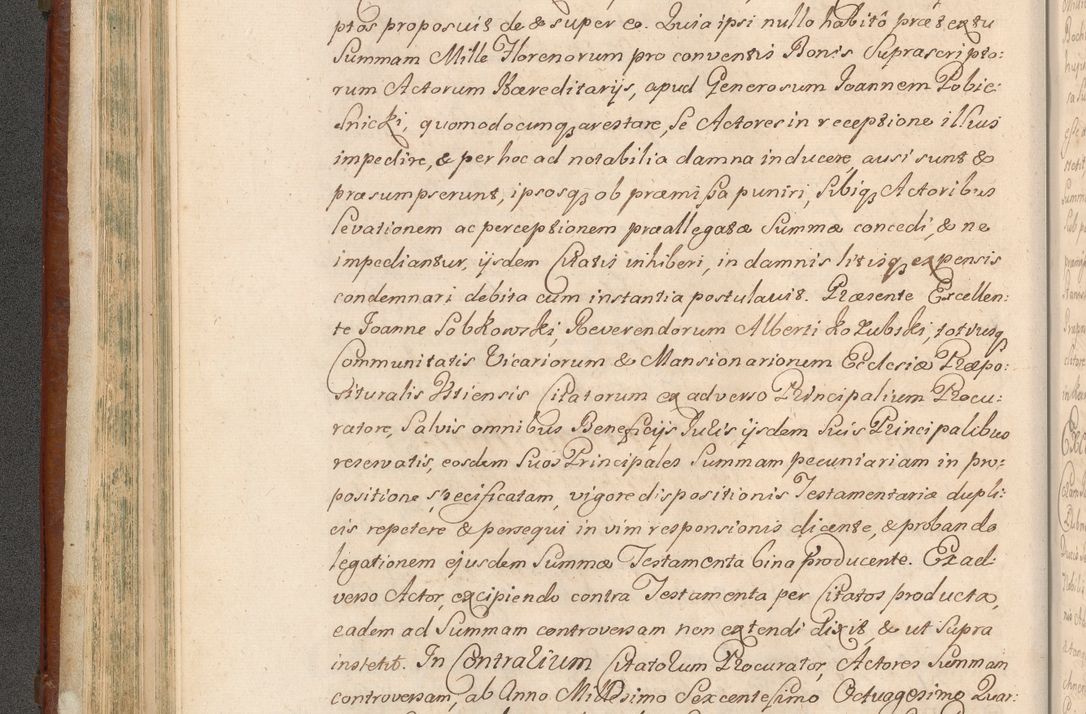 ptos proposuit de & super eo. Quia ipsi nullo habito prætextu
Summam Mille Florenorum pro conventis Bonis Suprascripto:
rum Actorum Hæreditarijs, apud Generosum Joannem Pobie:
Snicki, quomodocunqꝫ arestare, Se Actores in receptione illius
impedire, & per hoc ad notabilia damna inducere, ausi sunt &
præsumpserunt, ipsosqꝫ ob præmissa puniri, Sibiqꝫ Actoribus
levationem ac perceptionem præallegatæ Summæ concedi, & ne
impediantur, ijsdem Citatis inhiberi, in damnis litisqꝫ expensis
condemnari debita cum instantia postulavit. Præsente Excellen:
te Joanne Sobkowski, Reverendorum Alberti Kozubski, totiusqꝫ
Communitatis Vicariorum & Mansionariorum Ecclesiæ Præpo:
situralis Ittiensis Citatorum ex adverso Principalium Procu:
ratore, Salvis omnibus Beneficijs Juris ijsdem Suis Principalibus
reservatis, eosdem Suos Principales Summam pecuniariam in pro:
positione specificatam, vigore dispositionis Testamentariæ dupli:
cis repetere & persequi in vim responsionis dicente, & probando
legationem ejusdem Summæ Testamenta bina producente. Ex ad:
verso Actor, excipiendo contra Testamenta per Citatos producta,
eadem ad Summam controversam non extendi dixit & ut Supra
institit. In Contrarium Citatorum Procurator, Actores Summam
controversam, ab Anno Millesimo Sexcentesimo Octuagesimo Quar: